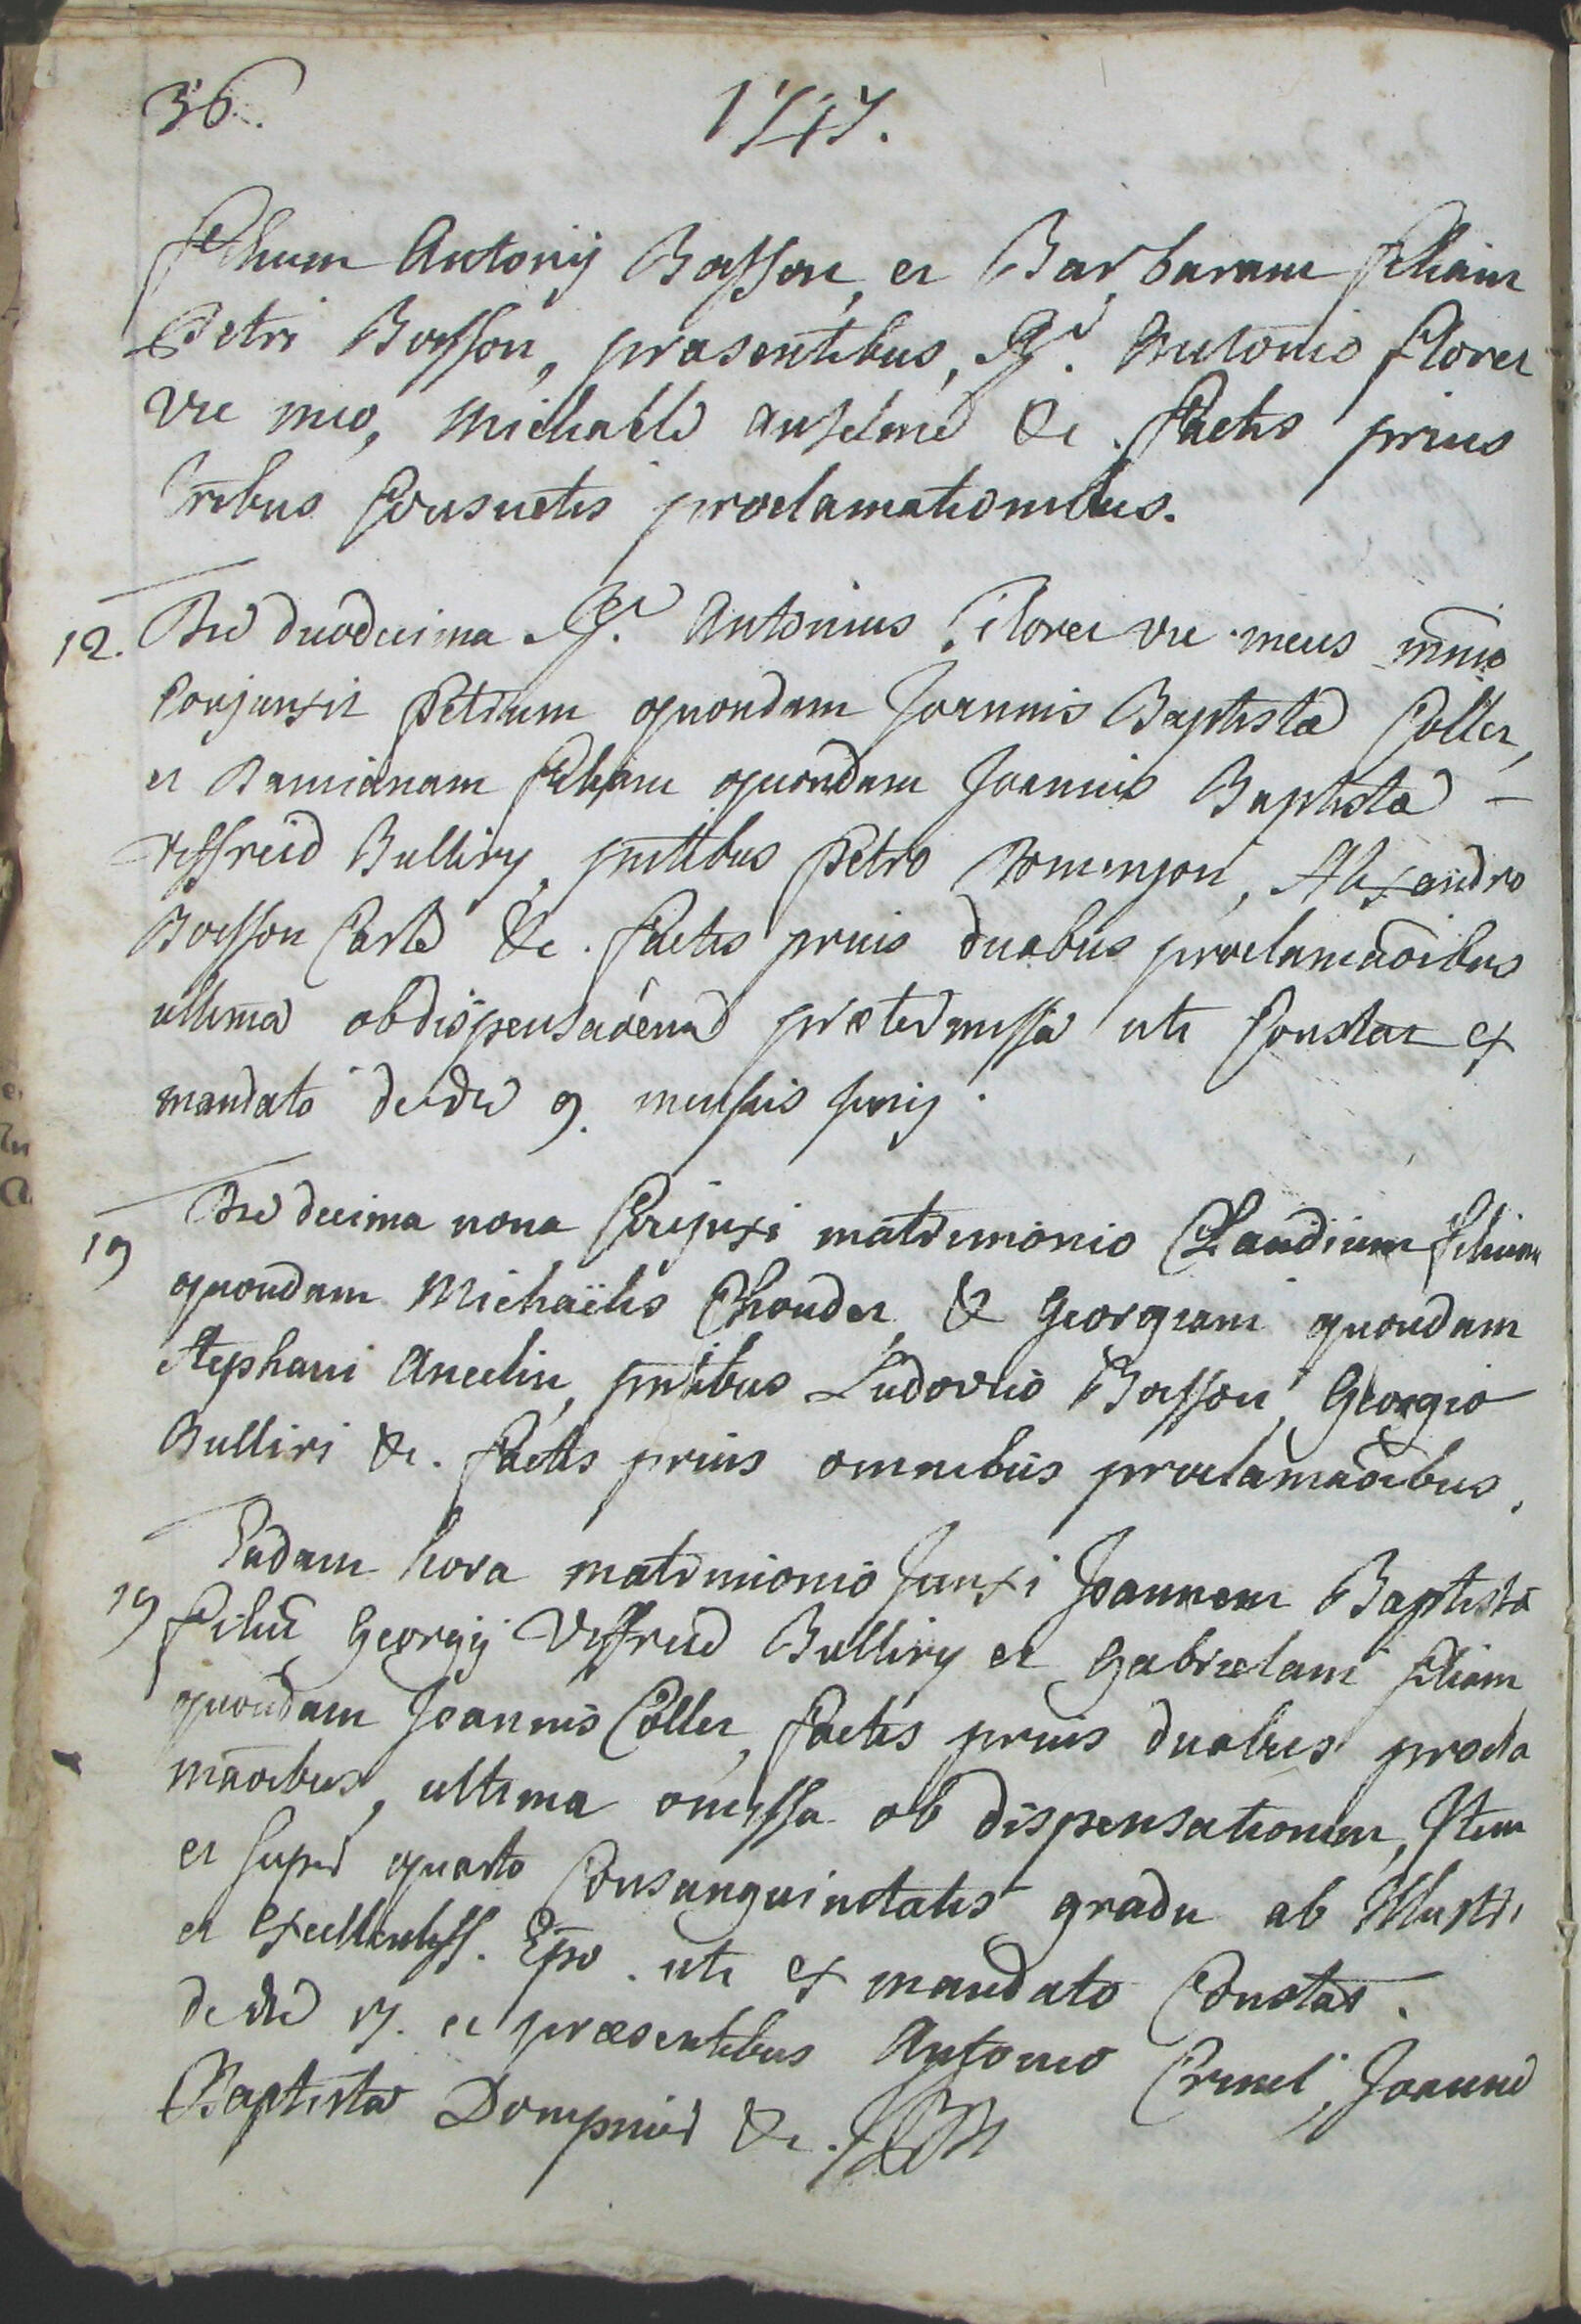 36.
1747.
filium Antonij Bosson, et Barbaram filiam
Petri Bosson, præsentibus, Rd. Antonio Floret
vic meo, Michaële Anselme &c. factis prius
tribus consuetis proclamationibus.
12. Die duodecima Rd. Antonius Floret vic meus mnio
conjunxit Petrum quondam Joannis Baptistæ Collet,
et Damianam filiam quondam Joannis Baptistæ -
Veffreid Bulliry, pntibus Petro Domenjon, Alexandro
Bosson Carle &c. factis prius duabus proclamaõibus
ultima ob dispensaõem prætermissa uti constat ex
mandato de die 9. mensis Junij.
19 Die decima nona conjuxi matrimonio Claudium filium
quondam Michaëlis Choudet, & Georgiam quondam
Stephani Ancelin, pntibus Ludovico Bosson, Georgio
Bulliri &c. factis prius omnibus proclamaõibus.
19 Eadem hora matrimonio junxi Joannem Baptistã
filiũ Georgij Veffreid Bulliry et Gabrielam filiam
quondam Joannis Collet, factis prius duabus procla
maõibus, ultima omissa ob dispensationem, Item
et super quarto consanguinitatis gradu ab Illustri
et Excellentiss. Epo. uti ex mandato constat.
de die 17. et præsentibus Antonio Crusel, Joanne
Baptista Dompnier &c.